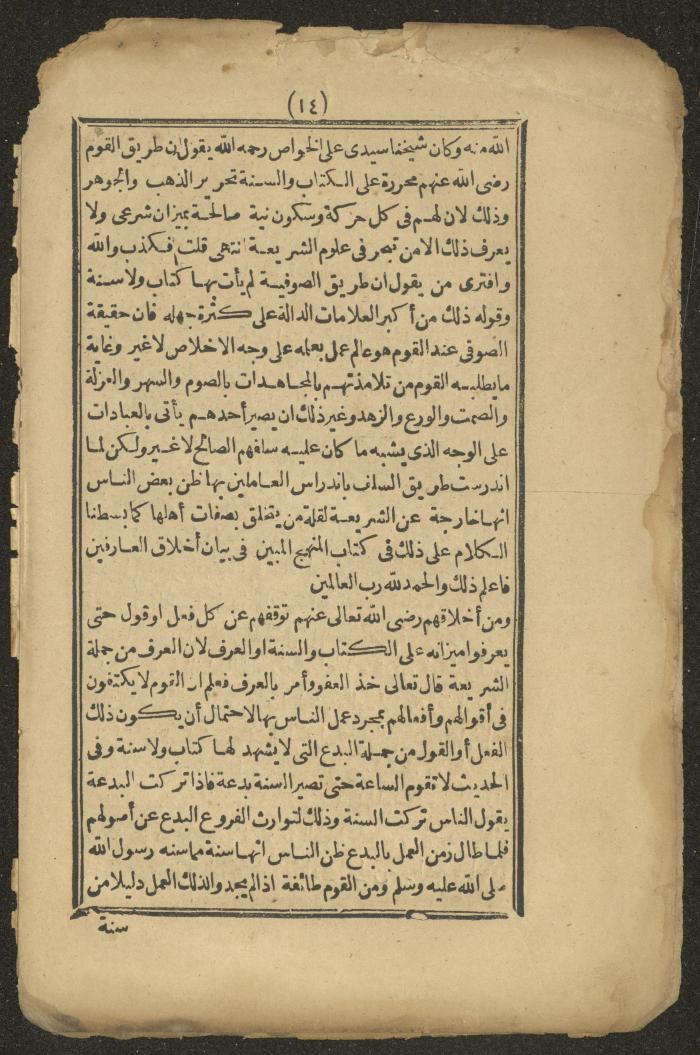 (١٤)
الله منه وكان شيخنا سيدى على الخواص رحمه الله يقول ان طريق القوم
رضى الله عنهم محررة على الكتاب والسنة تحرير الذهب والجوهر
وذلك لان لهم فى كل حركة وسكون نية صالحة بميزان شرعى ولا
يعرف ذلك الامن تبحر فى علوم الشريعة انتهى قلت فكذب والله
وافترى من يقول ان طريق الصوفية لم يأت بها كتاب ولا سنة
وقوله ذلك من أكبر العلامات الدالة على كثرة جهله فان حقيقة
الصوفى عند القوم هو عالم عمل بعلمه على وجه الاخلاص لاغير وغاية
ما يطلبه القوم من تلامذتهم بالمجاهدات بالصوم والسهر والعزلة
والصمت والورع والزهد وغير ذلك ان يصير أحدهم يأتى بالعبادات
على الوجه الذى يشبه ما كان عليه سلفهم الصالح لاغير ولكن لما
اندرست طريق السلف باندراس العاملين بها ظن بعض الناس
انها خارجة عن الشريعة لقلة من يتخلق بصفات أهلها كما بسطنا
الكلام على ذلك فى كتاب المنهج المبين فى بيان أخلاق العارفين
فاعلم ذلك والحمد لله رب العالمين
ومن أخلاقهم رضى الله تعالى عنهم توقفهم عن كل فعل او قول حتى
يعرفوا ميزانه على الكتاب والسنة او العرف لان العرف من جملة
الشريعة قال تعالى خذ العفو وأمر بالعرف فعلم ان القوم لا يكتفون
فى أقوالهم وأفعالهم بمجرد عمل الناس بها لاحتمال أن يكون ذلك
الفعل أو القول من جملة البدع التى لا يشهد لها كتاب ولا سنة وفى
الحديث لا تقوم الساعة حتى تصير السنة بدعة فاذا تركت البدعة
يقول الناس تركت السنة وذلك لتوارث الفروع البدع عن أصولهم
فلما طال زمن العمل بالبدع ظن الناس انها سنة مما سنه رسول الله
صلى الله عليه وسلم ومن القوم طائفة اذا لم يجدوا لذلك العمل دليلا من
سنة